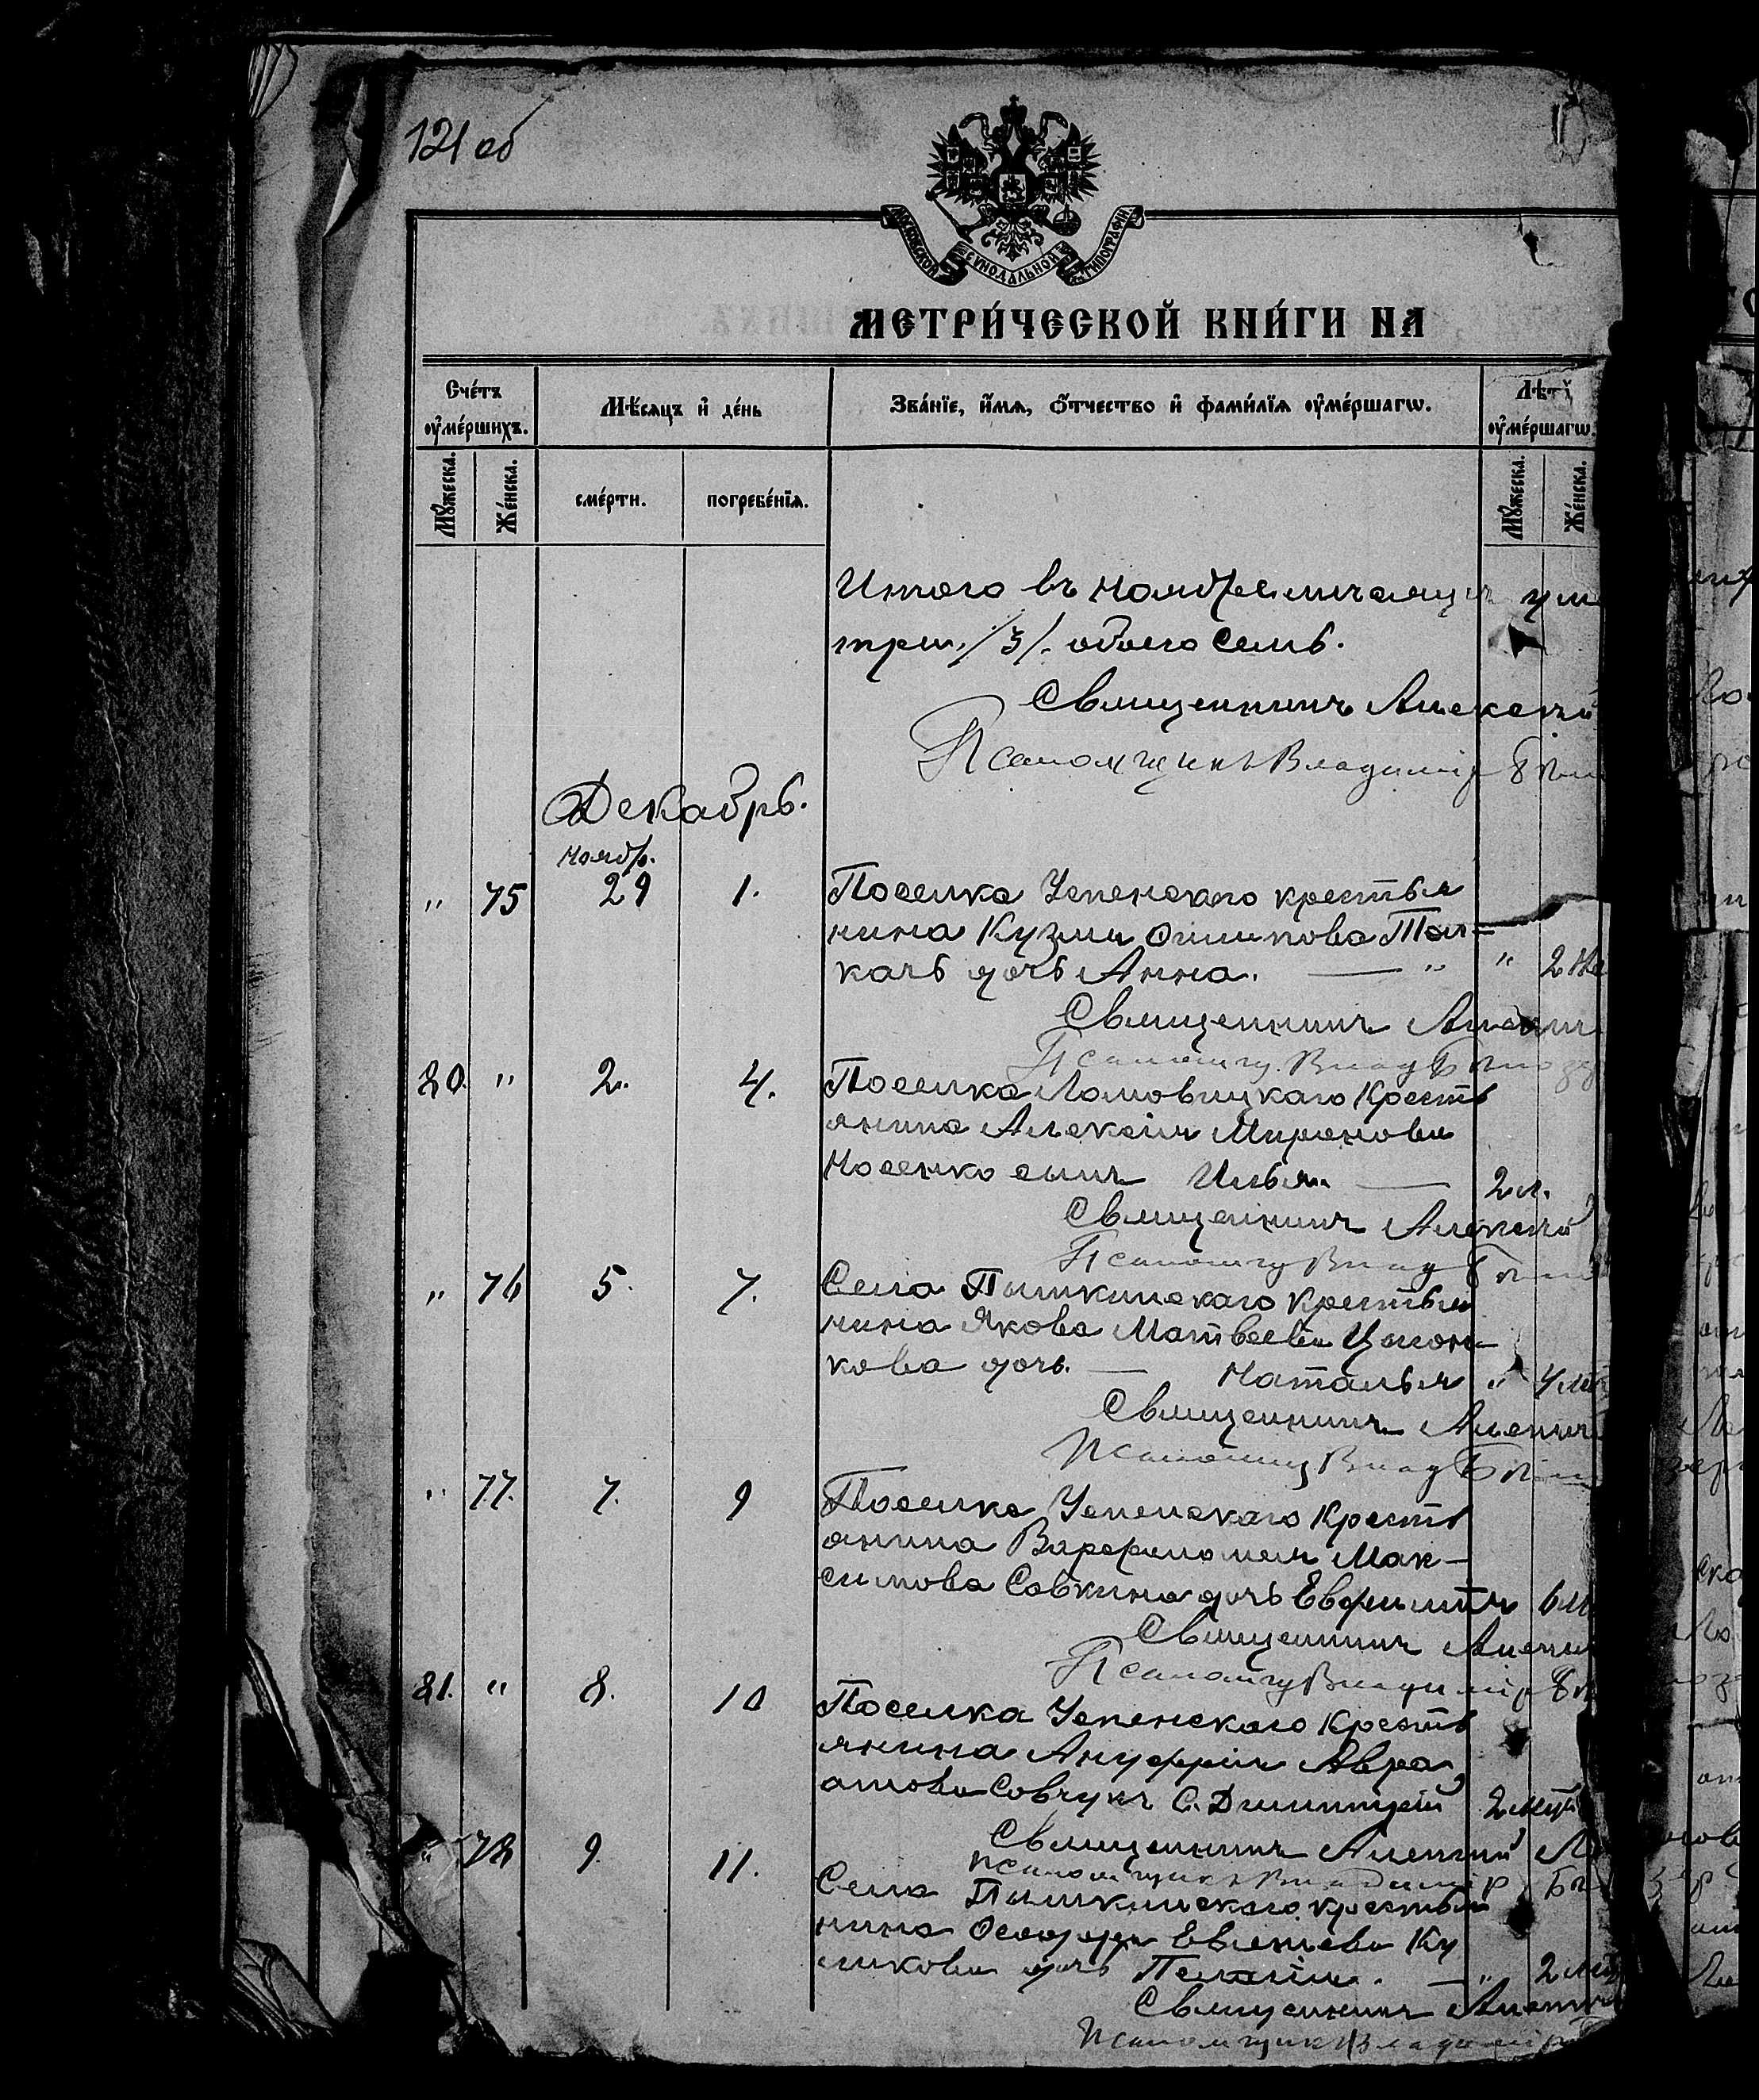 121 об
МОСКОВСКОЙ СѴНОДАЛЬНОЙ ТИПОГРАФІИ
МЕТРИ́ЧЕСКОЙ КНИ́ГИ НА
Сче́тъ ᲂу҆ме́ршихъ.
Мѣ́сяцъ и҆ де́нь
Зва́нїе, и҆́мѧ, ѻ҆́тчество и҆ фами́лїѧ ᲂу҆ме́ршагѡ.
Лѣт
ᲂу҆ме́ршагѡ.
Мꙋ́жеска.
Же́нска.
сме́рти.
погребе́нїѧ.
Мꙋ́жеска.
Же́нска.
Итого въ ноябре месяце ум
три /3/. обоего семь.
Священникъ Алексей
Псаломщикъ Владиміръ
Декабрь.
Ноябр.
" 75 29 1. Поселка Успенскаго крестья
нина Кузмы Осипова Тол=
качъ дочь Анна. — " " 2 не
Священникъ
Псаломщ. Влад
80. " 2. 4. Поселка Ломовицкаго Кресть
янина Алексія Миронова
Носенко сынъ Илья. — 2 л.
Священникъ Алексей
Псаломщ Влад
" 76 5. 7. Села Пышкинскаго Крестья
нина Якова Матвеева
кова дочь. — Наталья " 4
Священникъ
Псаломщ Влад
" 77. 7. 9 Поселка Успенскаго Кресть
янина Варфоломея Мак-
симова Савкина дочь 6
Священникъ
Псаломщ Владиміръ
81. " 8. 10 Поселка Успенскаго Кресть
янина Ануфрія Авра
амова Совчукъ С. Димитрій 2
Священникъ Алексий
Псаломщикъ Владиміръ
" 78 9. 11. Села Пышкинскаго крестья
нина Ку
ликова дочь Пелагія. — " 2
Священникъ
Псаломщикъ Владиміръ